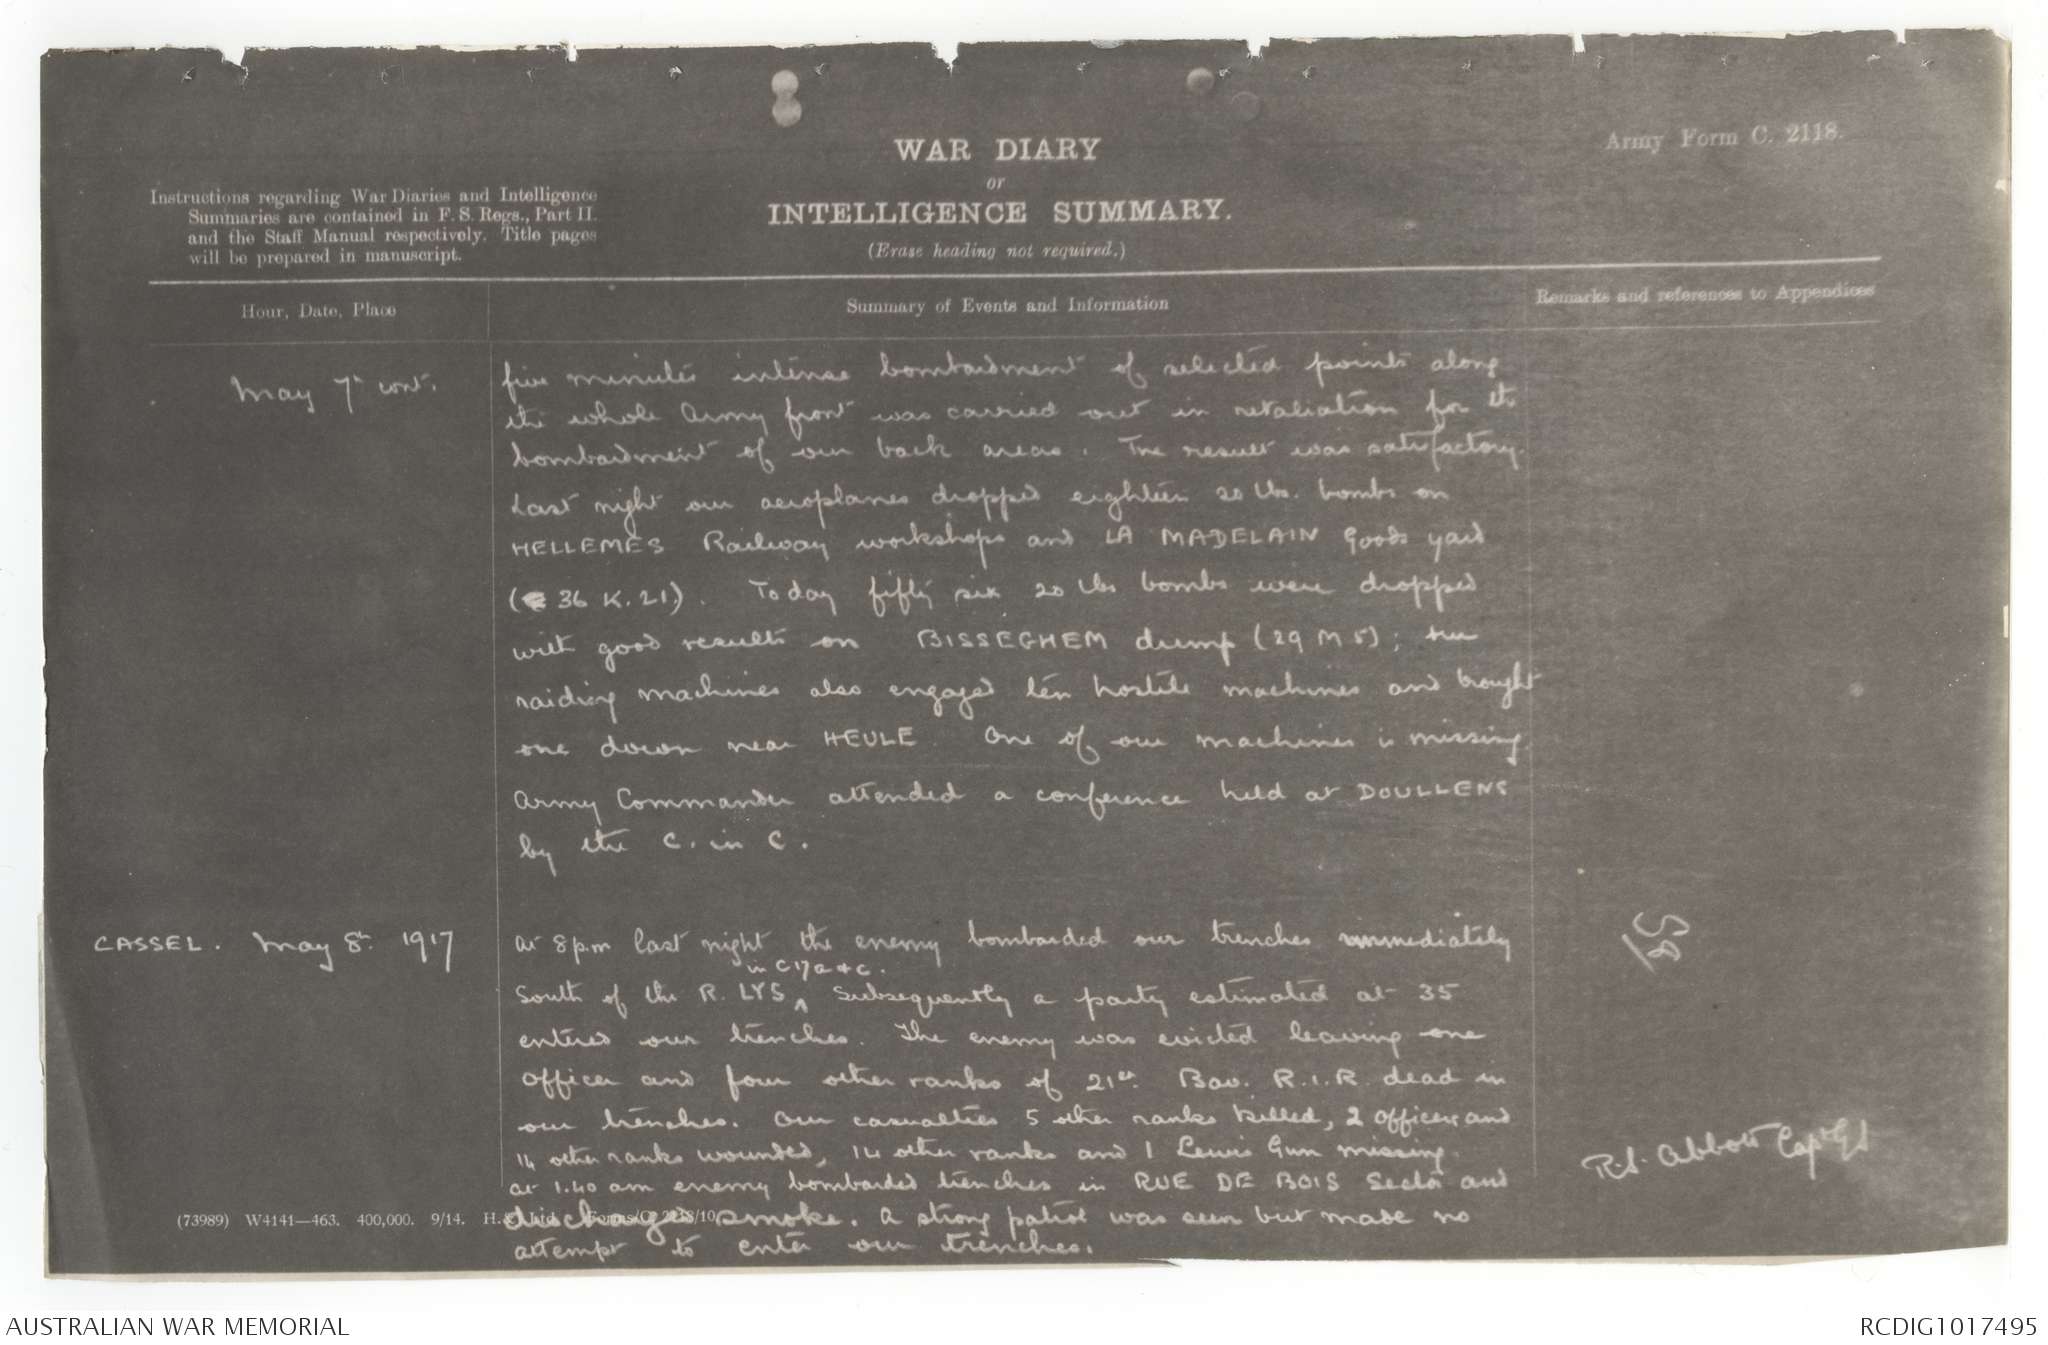 Army Form C. 2118.
WAR DIARY
or
INTELLIGENCE SUMMARY.
(Erase heading not required.)
Instructions regarding War Diaries and Intelligence
Summaries are contained in F. S. Regs., Part II.
and the Staff Manual respectively. Title pages
will be prepared in manuscript.
Hour, Date, Place
Summary of Events and Information
Remarks and references to Appendices
May 7th cont.
five minutes intense bombardment of selected points along
the whole Army front was carried out in retaliation for the
bombardment of our back areas. The result was satisfactory.
Last night our aeroplanes dropped eighteen 20 lbs. bombs on
HELLEMES Railway workshops and LA MADELAIN Goods yard
(36 K.21.). Today fifty six 20 lbs bombs were dropped
with good results on BISSEGHEM dump (29 M 5); the
raiding machines also engaged ten hostile machines and brought
one down near HEULE. One of our machines is missing.
Army Commander attended a conference held at DOULLENS
by the C. in C.
CASSEL. May 8th 1917
At 8pm last night the enemy bombarded our trenches immediately
in C17a & c.
South of the R. LYS ^ Subsequently a party estimated at 35
entered our trenches. The enemy was evicted leaving one
officer and four other ranks of 21st Bav. R.I.R. dead in
our trenches. Our casualties 5 other ranks killed, 2 officers and
14 other ranks wounded, 14 other ranks and 1 Lewis Gun missing.
At 1.40 am enemy bombarded trenches in RUE DE BOIS Sector and
discharged smoke. A strong patrol was seen but made no
attempt to enter our trenches.
R.S. Abbott Capt GS
(73989) W4141—463. 400,000. 9/14. H.&J. Ltd. Forms/C. 2118/10.
AUSTRALIAN WAR MEMORIAL
RCDIG1017495